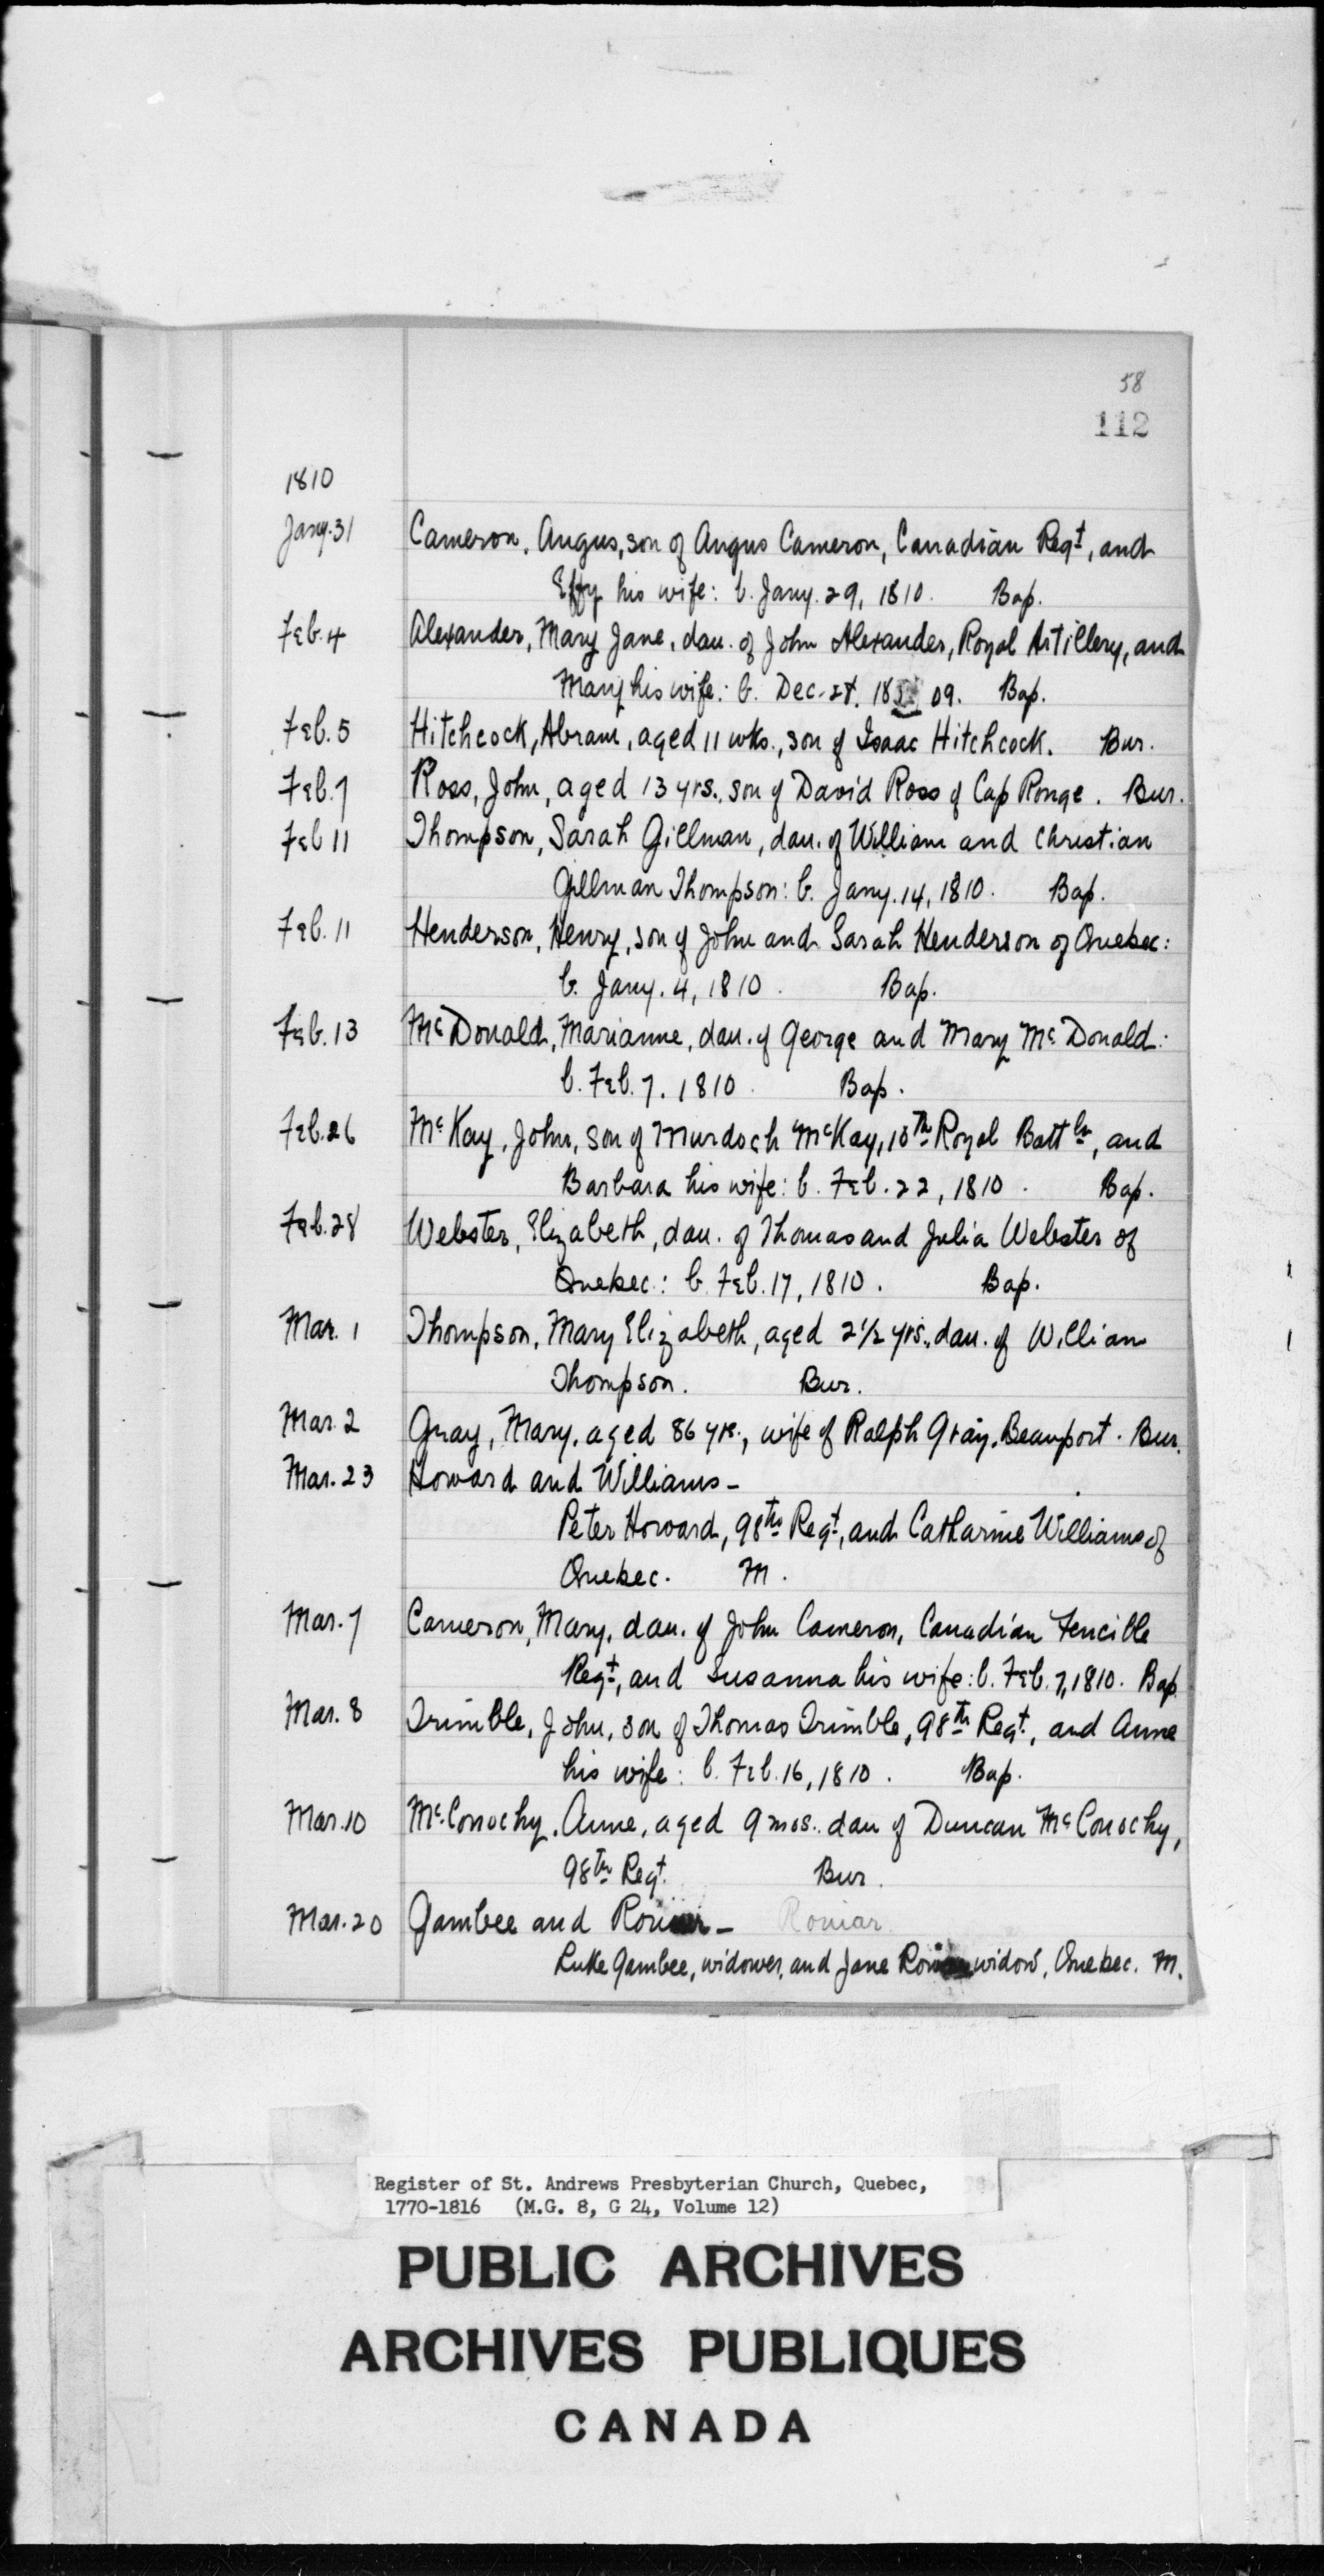 58
112
1810
Jany. 31 Cameron, Angus, son of Angus Cameron, Canadian Regt, and
Effy his wife: b. Jany. 29, 1810. Bap.
Feb. 4 Alexander, Mary Jane, dau. of John Alexander, Royal Artillery, and
Mary his wife: b. Dec. 28. 18 09. Bap.
Feb. 5 Hitchcock, Abram, aged 11 wks., son of Isaac Hitchcock. Bur.
Feb. 7 Ross, John, aged 13 yrs., son of David Ross of Cap Rouge. Bur.
Feb 11 Thompson, Sarah Gillman, dau. of William and Christian
Gillman Thompson: b. Jany. 14, 1810. Bap.
Feb. 11 Henderson, Henry, son of John and Sarah Henderson of Quebec:
b. Jany. 4, 1810. Bap.
Feb. 13 McDonald, Marianne, dau. of George and Mary McDonald:
b. Feb. 7. 1810. Bap.
Feb. 26 McKay, John, son of Murdoch McKay, 10th Royal Battln, and
Barbara his wife: b. Feb. 22, 1810. Bap.
Feb. 28 Webster, Elizabeth, dau. of Thomas and Julia Webster of
Quebec: b. Feb. 17, 1810. Bap.
Mar. 1 Thompson, Mary Elizabeth, aged 2 1/2 yrs., dau. of William
Thompson. Bur.
Mar. 2 Gray, Mary, aged 86 yrs., wife of Ralph Gray, Beauport. Bur.
Mar. 23 Howard and Williams -
Peter Howard, 98th Regt, and Catharine Williams of
Quebec. M.
Mar. 7 Cameron, Mary, dau. of John Cameron, Canadian Fencible
Regt, and Susanna his wife: b. Feb. 7, 1810. Bap
Mar. 8 Trimble, John, son of Thomas Trimble, 98th Regt, and Anne
his wife: b. Feb. 16, 1810. Bap.
Mar. 10 McConochy, Anne, aged 9 mos. dau of Duncan McConochy,
98th Regt. Bur.
Mar. 20 Gambee and Roniar - Roniar
Luke Gambee, widower, and Jane widow, Quebec. M.
Register of St. Andrews Presbyterian Church, Quebec,
1770-1816 (M.G. 8, G 24, Volume 12)
PUBLIC ARCHIVES
ARCHIVES PUBLIQUES
CANADA